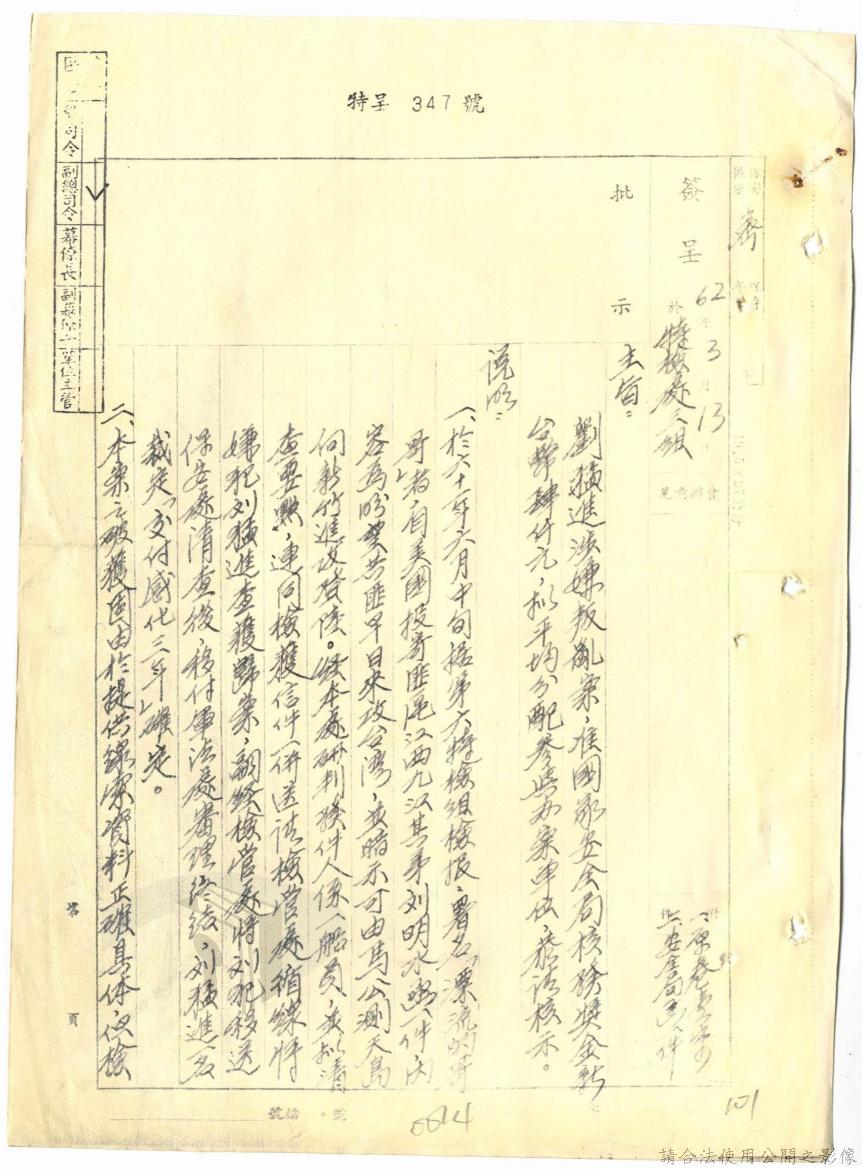 特呈 347 號
簽呈
於
62年3月13
特檢處三組
批示
主旨：
劉猿進涉嫌叛亂案，准國家安全局核發獎金新
台幣肆仟元，擬平均分配參與办案單位，恭請核示。
說明：
一、於六十一年六月中旬據第六特檢組檢報：署名「漂流的哥
哥」者，自美國投寄匪區江西九江其弟刘明水函一件，內
容為盼望共匪早日來攻台湾，並暗示可由馬公測天島
向新竹進攻登陸。經本處研判發件人係一船員，並拟清
查要點，連同檢獲信件一併送請檢管處循線將
嫌犯刘猿進查獲歸案，嗣經檢管處將刘犯移送
保安處清查後，移付軍法處審理終結，刘猿進一名
裁定「交付感化三年」確定。
二、本案之破獲固由於提供線索資料正確具体，但檢
司令
副總司令
幕僚長
單位主管
密
會辦意見
附件
一、原卷
二、安全局函一件
第 頁
檔號
號
0614
101
請合法使用公開之影像